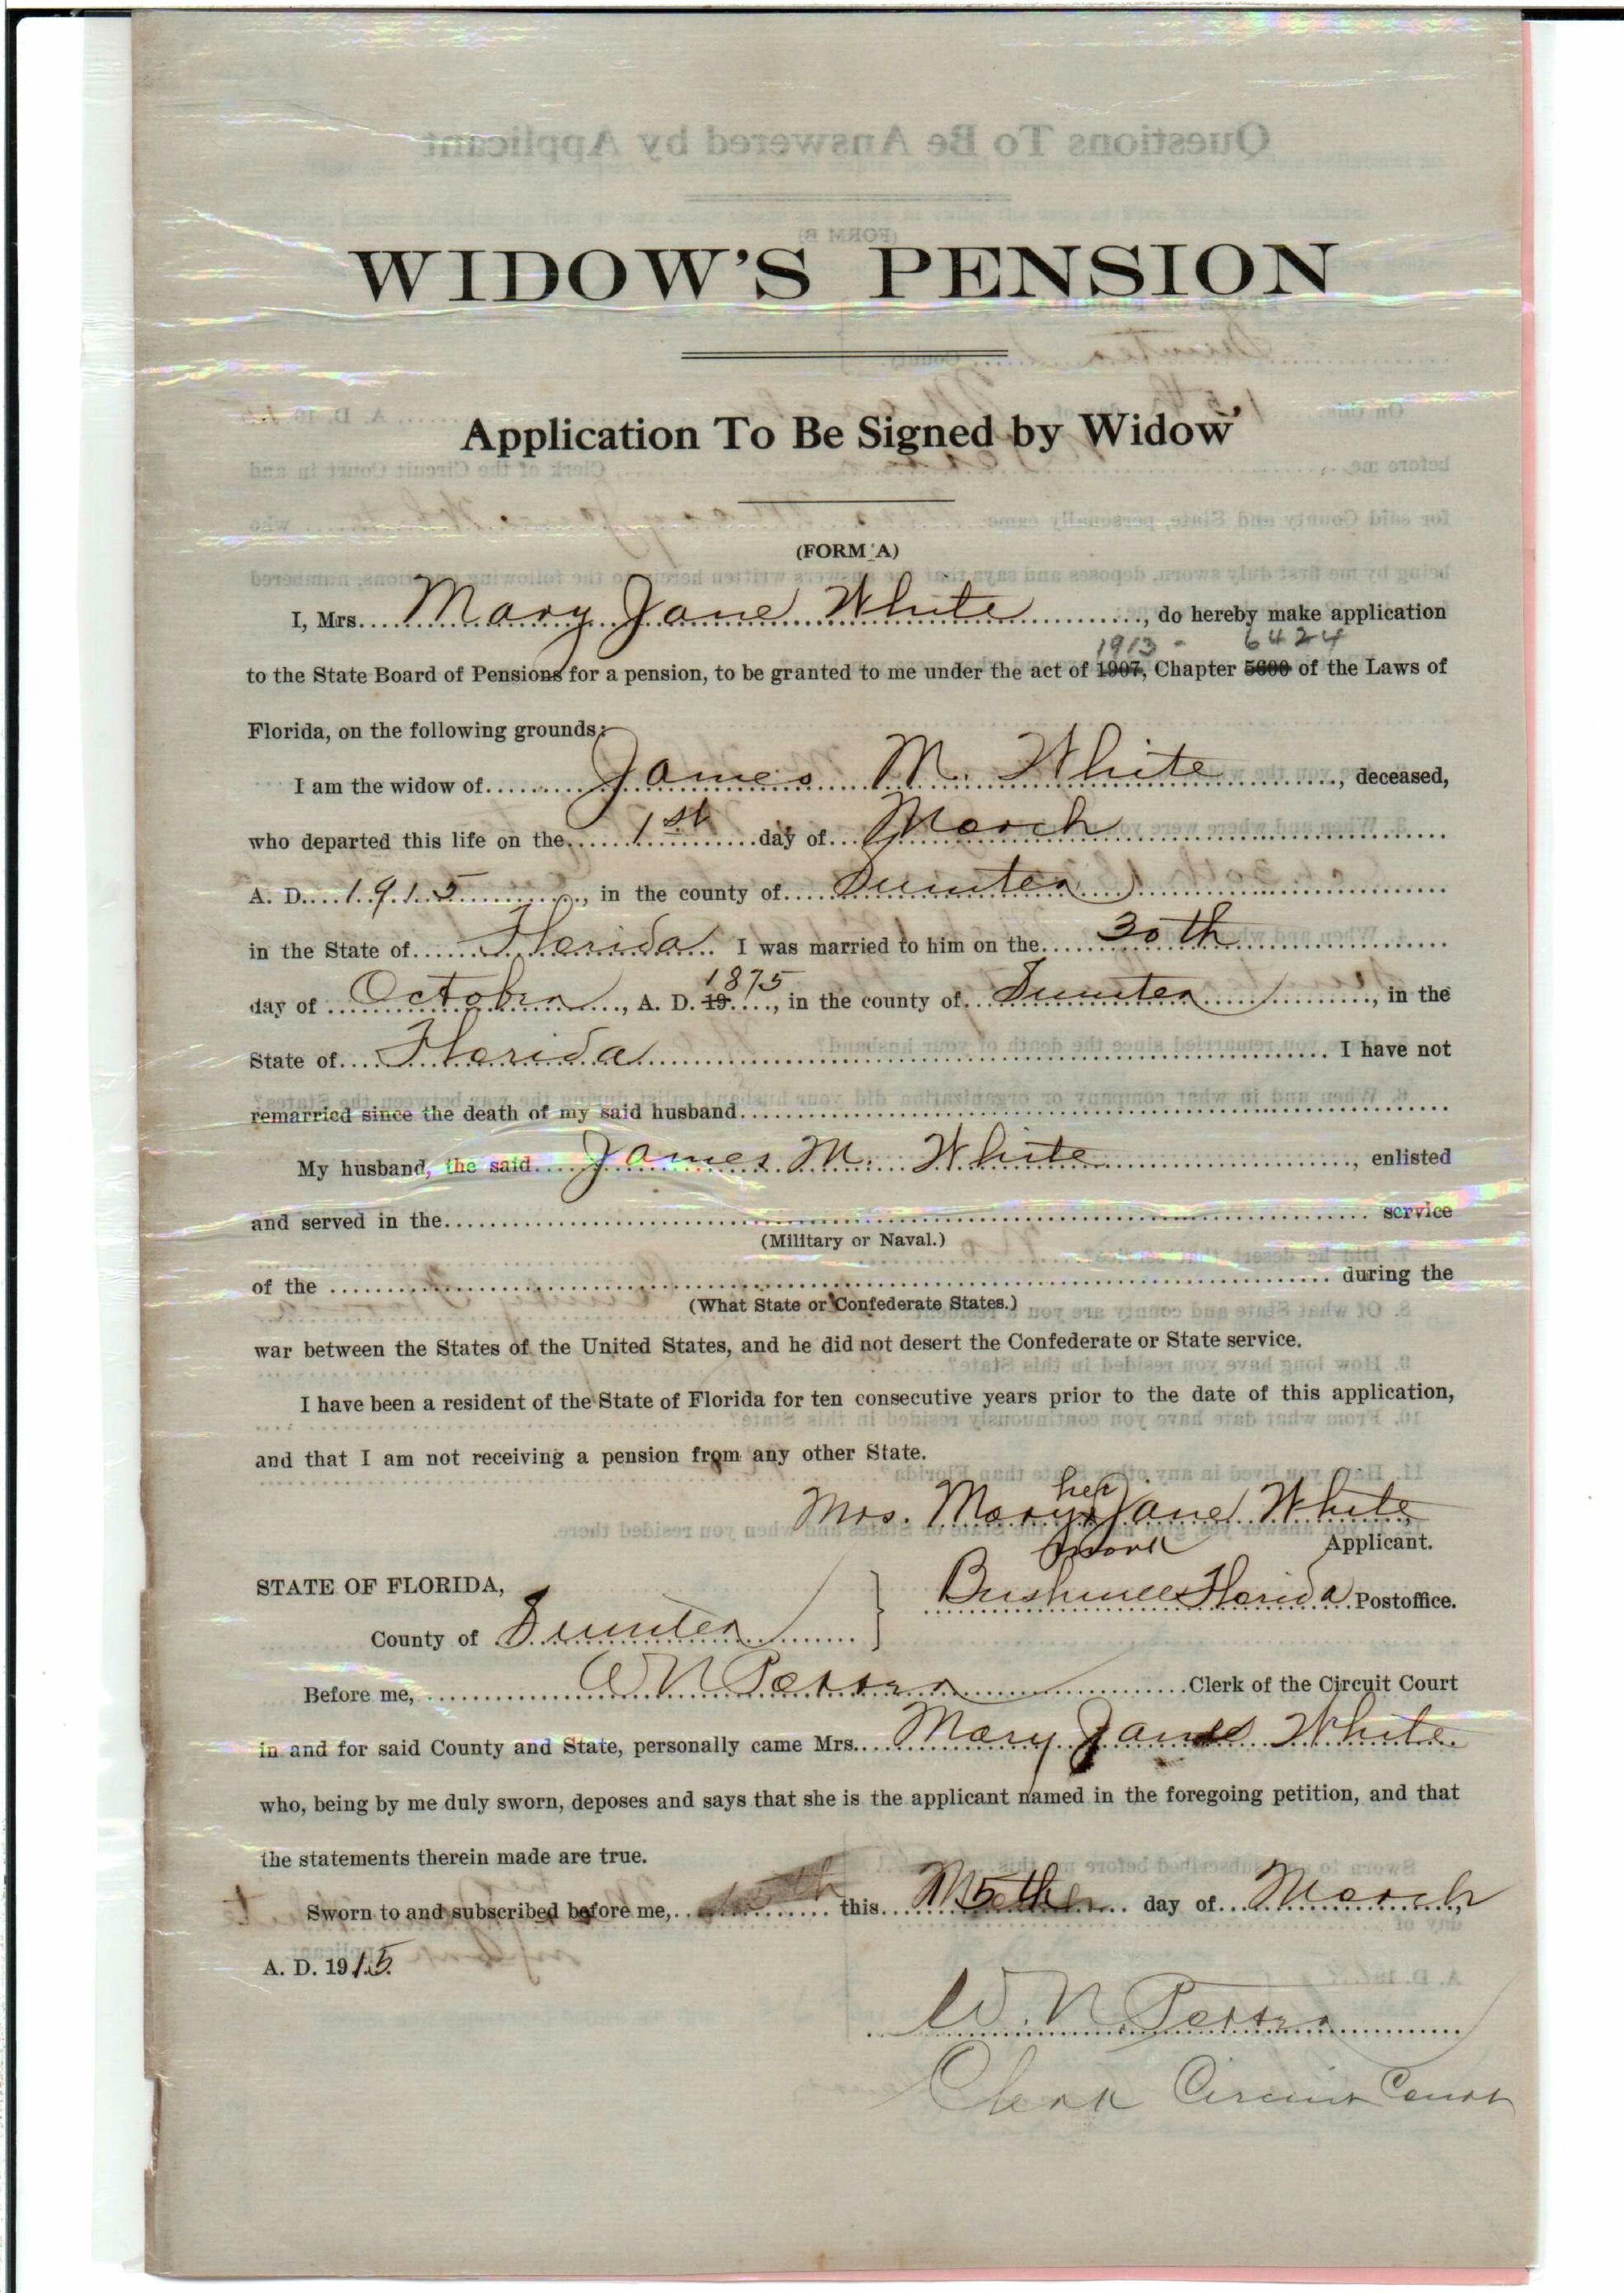 WIDOW'S PENSION
Application To Be Signed by Widow
(FORM A)
I, Mrs. Mary Jane White, do hereby make application
1913 - 6424
to the State Board of Pensions for a pension, to be granted to me under the act of 1907, Chapter 5600 of the Laws of
Florida, on the following grounds:
I am the widow of James M. White, deceased,
who departed this life on the 1st day of March
A. D. 1915, in the county of Sumter
in the State of Florida. I was married to him on the 30th
1875
day of October, A. D. 19, in the county of Sumter, in the
State of Florida I have not
remarried since the death of my said husband
My husband, the said James M. White, enlisted
and served in the service
(Military or Naval.)
of the during the
(What State or Confederate States.)
war between the States of the United States, and he did not desert the Confederate or State service.
I have been a resident of the State of Florida for ten consecutive years prior to the date of this application,
and that I am not receiving a pension from any other State.
her
Mrs. Mary x Jane White
mark Applicant.
STATE OF FLORIDA,
Bushnell Florida Postoffice.
County of Sumter
Before me, W N Clerk of the Circuit Court
in and for said County and State, personally came Mrs. Mary Jane White
who, being by me duly sworn, deposes and says that she is the applicant named in the foregoing petition, and that
the statements therein made are true.
Sworn to and subscribed before me, this day of March
A. D. 1915.
W. N.
Clerk Circuit Court